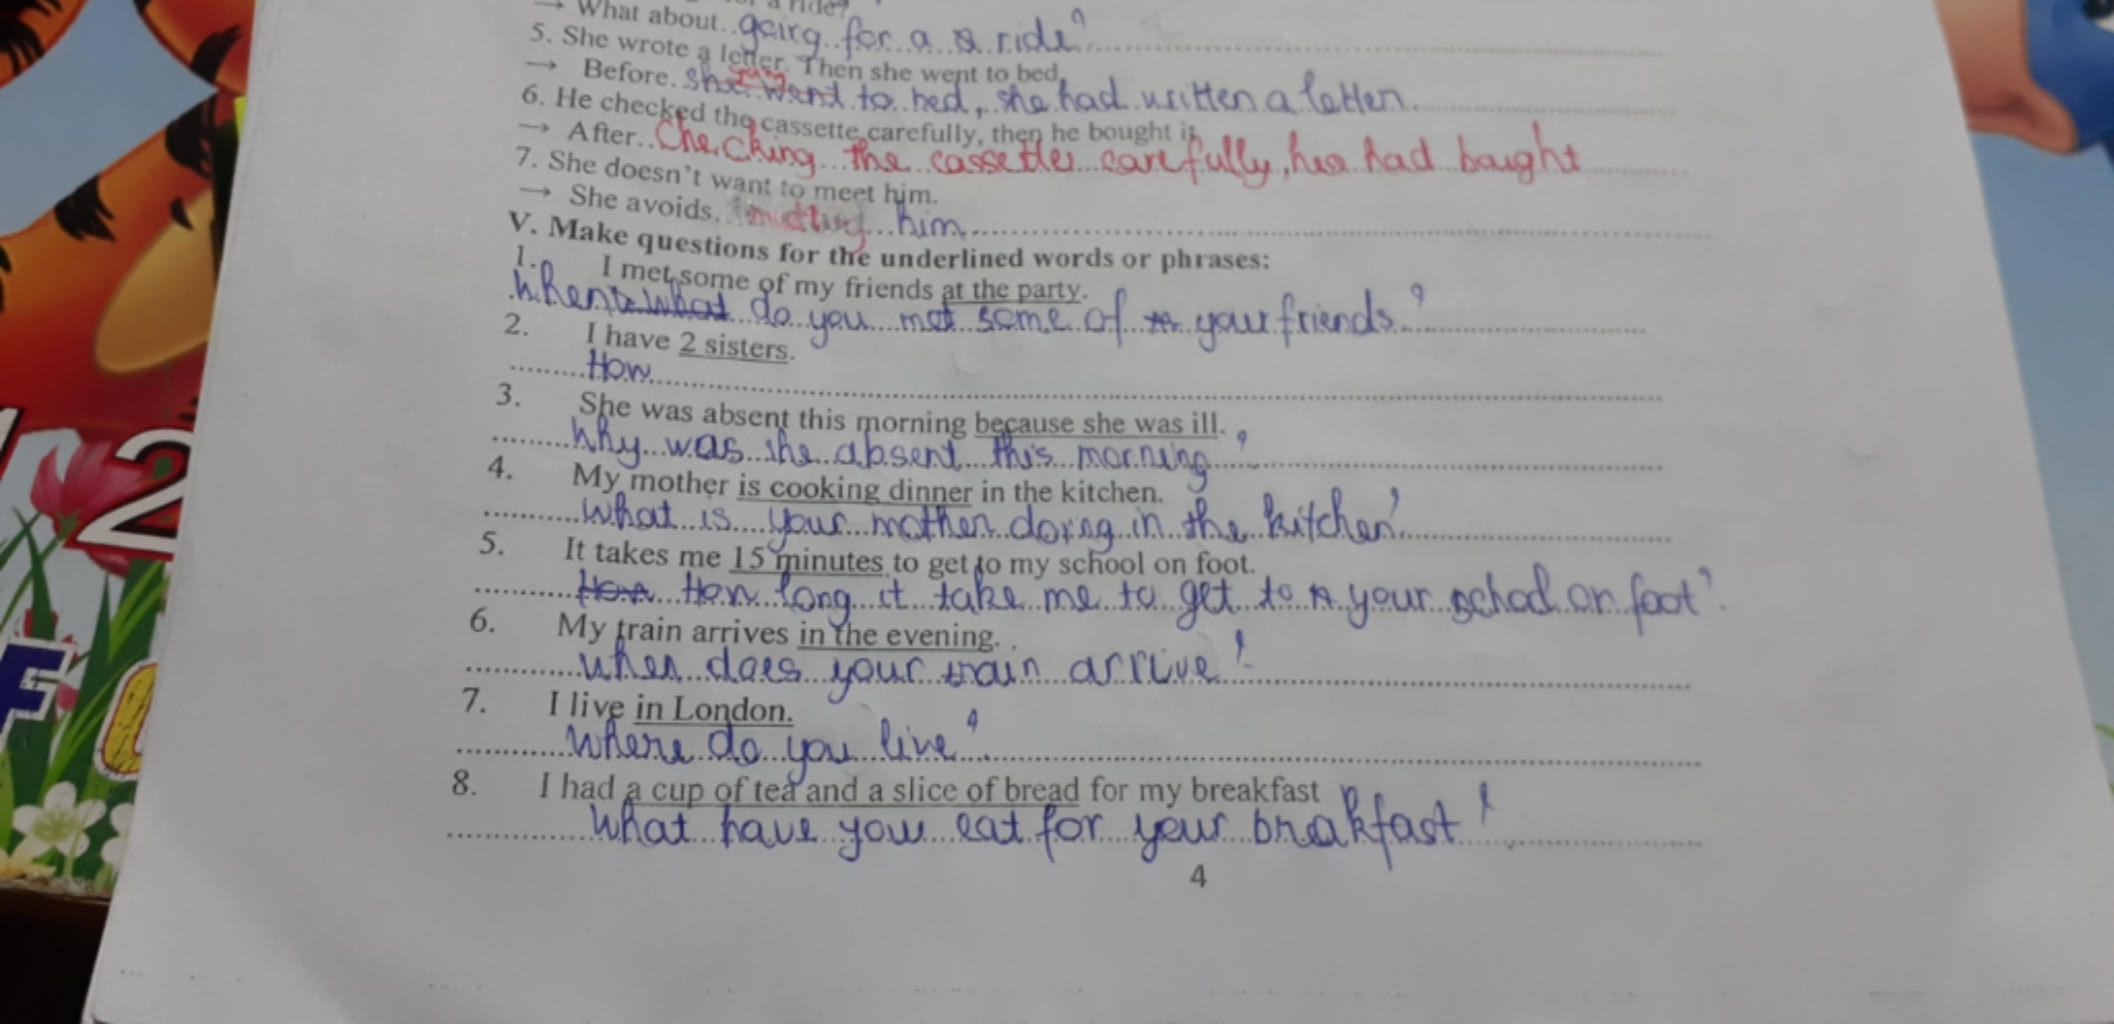 a ride?
→ What about..going for a ride?
5. She wrote a letter. Then she went to bed.
→ Before. she went to bed, she had written a letter.
6. He checked the cassette carefully, then he bought it.
→ After..Checking the cassette carefully, had bought
7. She doesn't want to meet him.
→ She avoids. him
V. Make questions for the underlined words or phrases:
1. I met some of my friends at the party.
what do you met some of your friends?
2. I have 2 sisters.
How
3. She was absent this morning because she was ill.
Why was she absent this morning?
4. My mother is cooking dinner in the kitchen.
What is your mother doing in the kitchen?
5. It takes me 15 minutes to get to my school on foot.
How How long it take me to get to your school on foot?
6. My train arrives in the evening. .
when does your train arrive?
7. I live in London.
where do you live?
8. I had a cup of tea and a slice of bread for my breakfast
What have you eat for your brakfast?
4
2
F